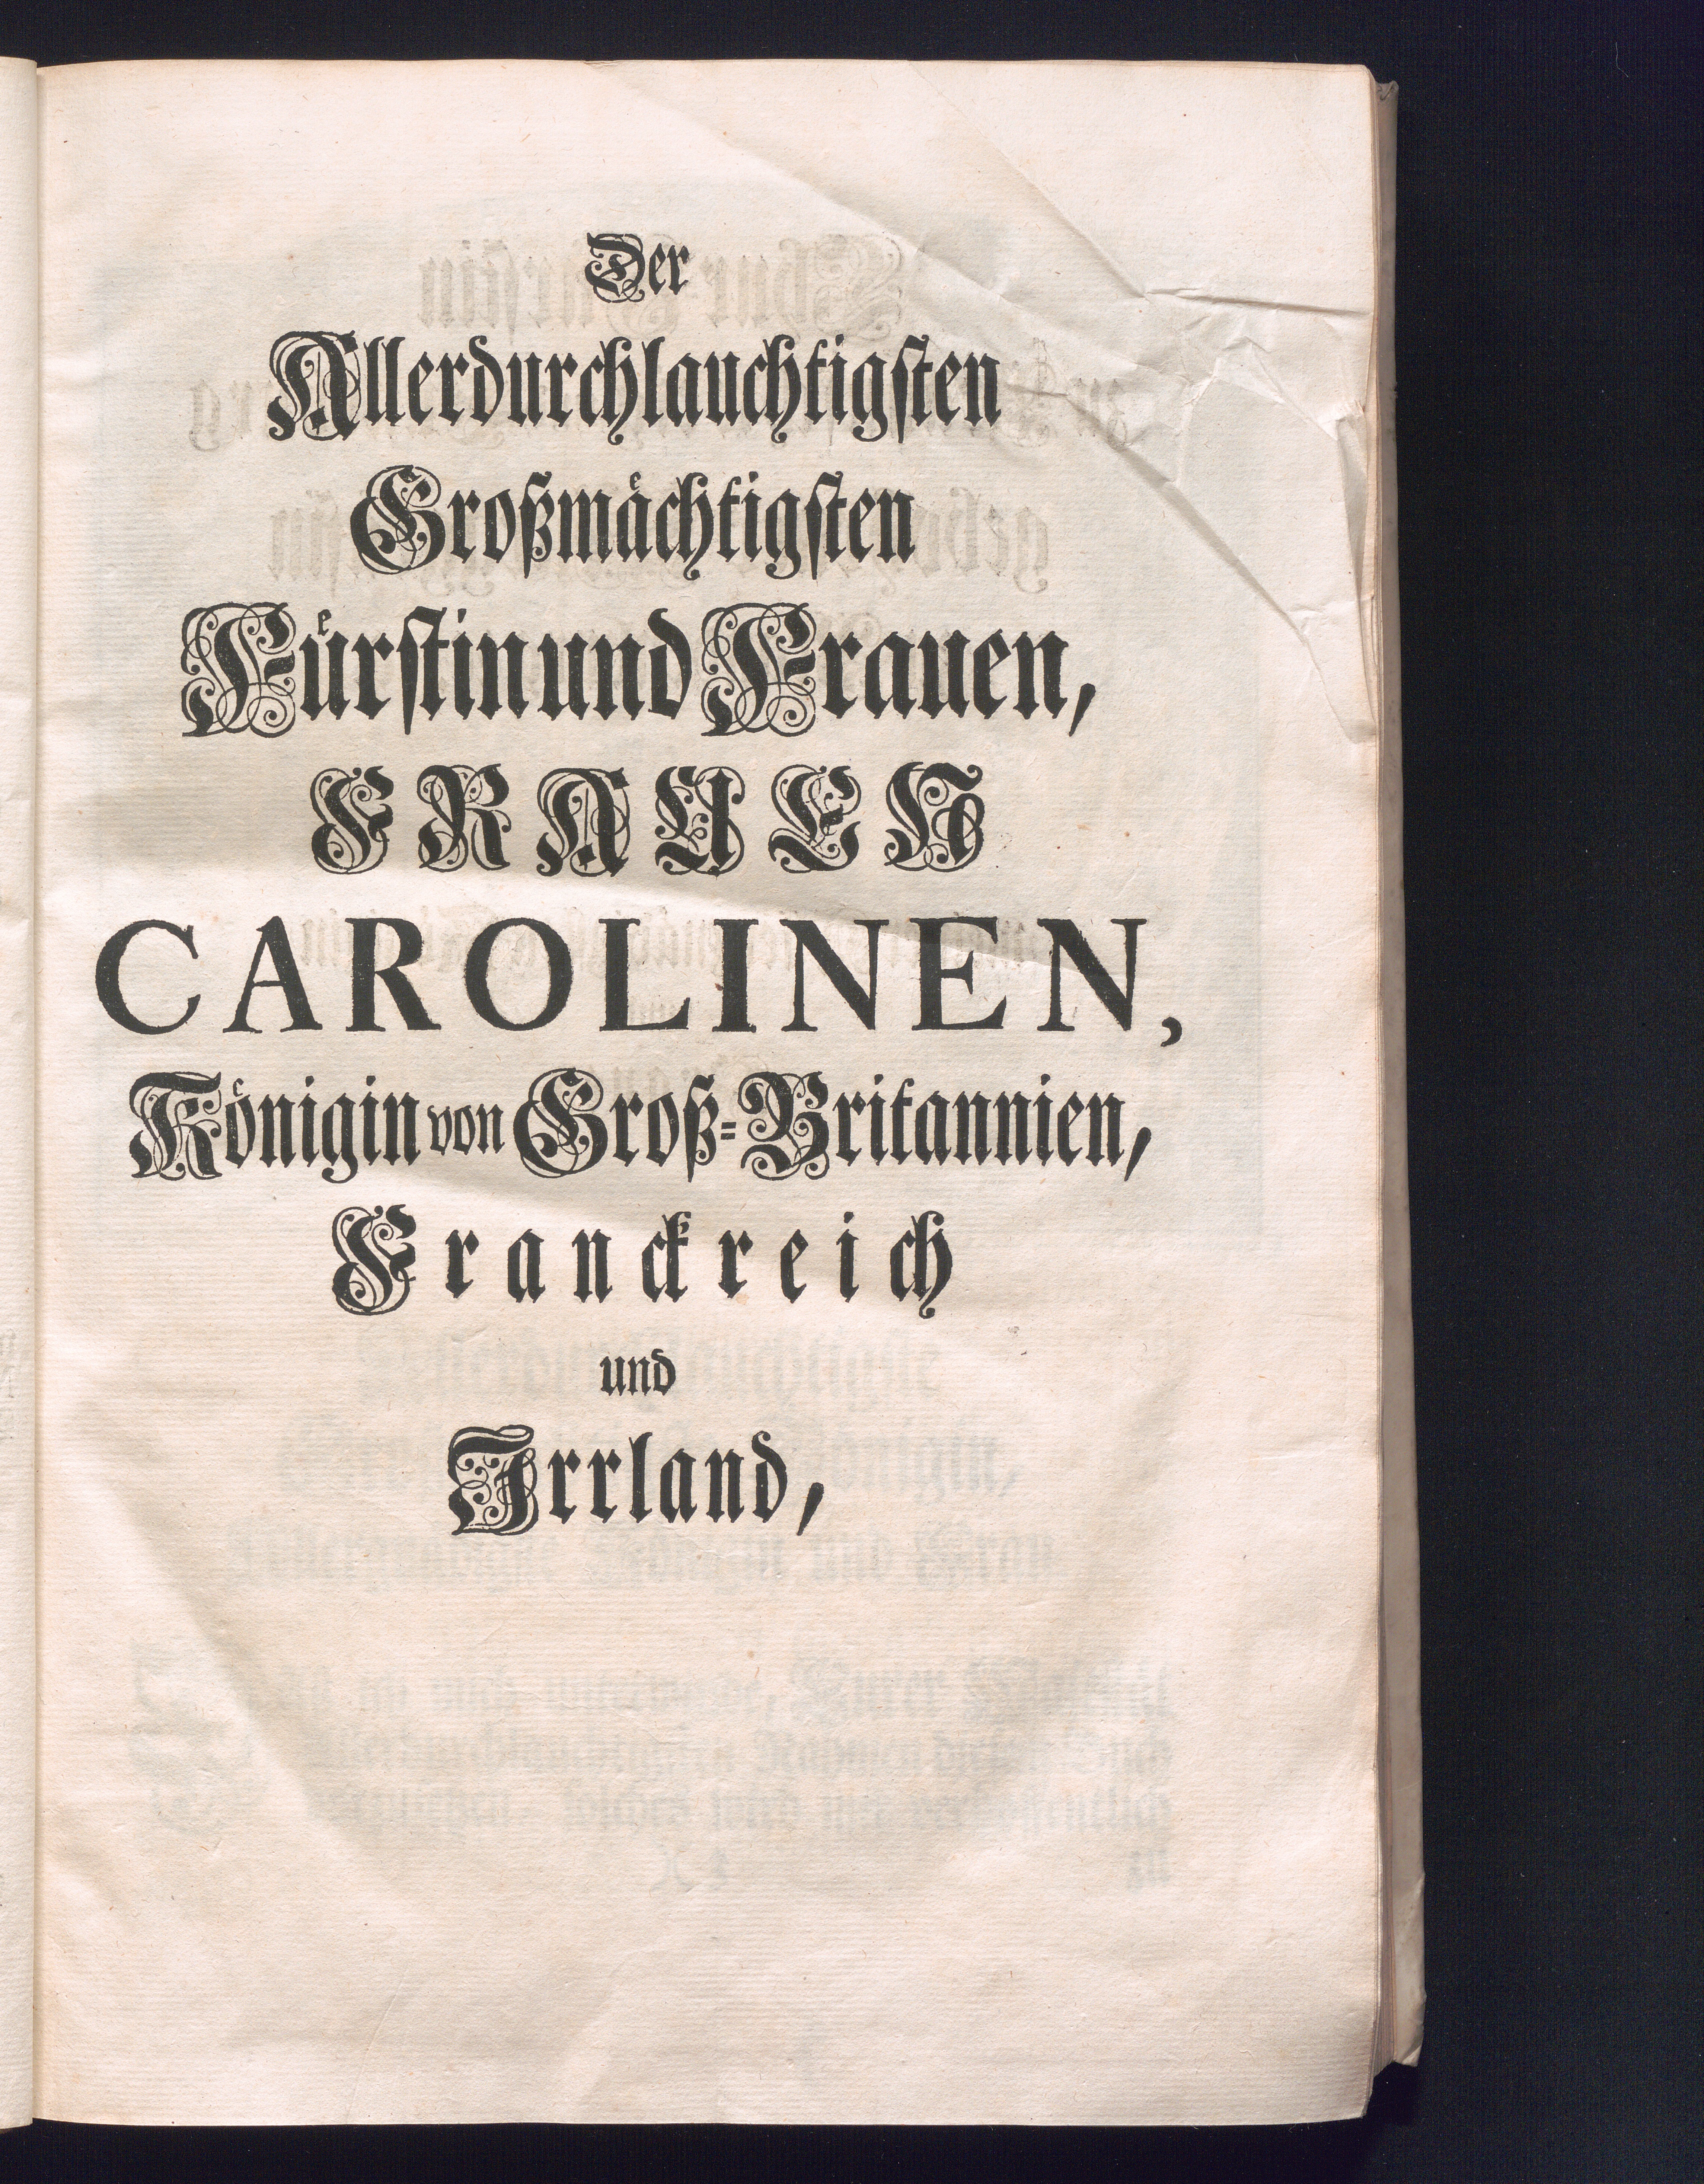 Der
Allerdurchlauchtigsten
Großmächtigsten
Fürstin und Frauen,
FRAUEN
CAROLINEN,
Königin von Groß-Britannien,
Franckreich
und
Irrland,